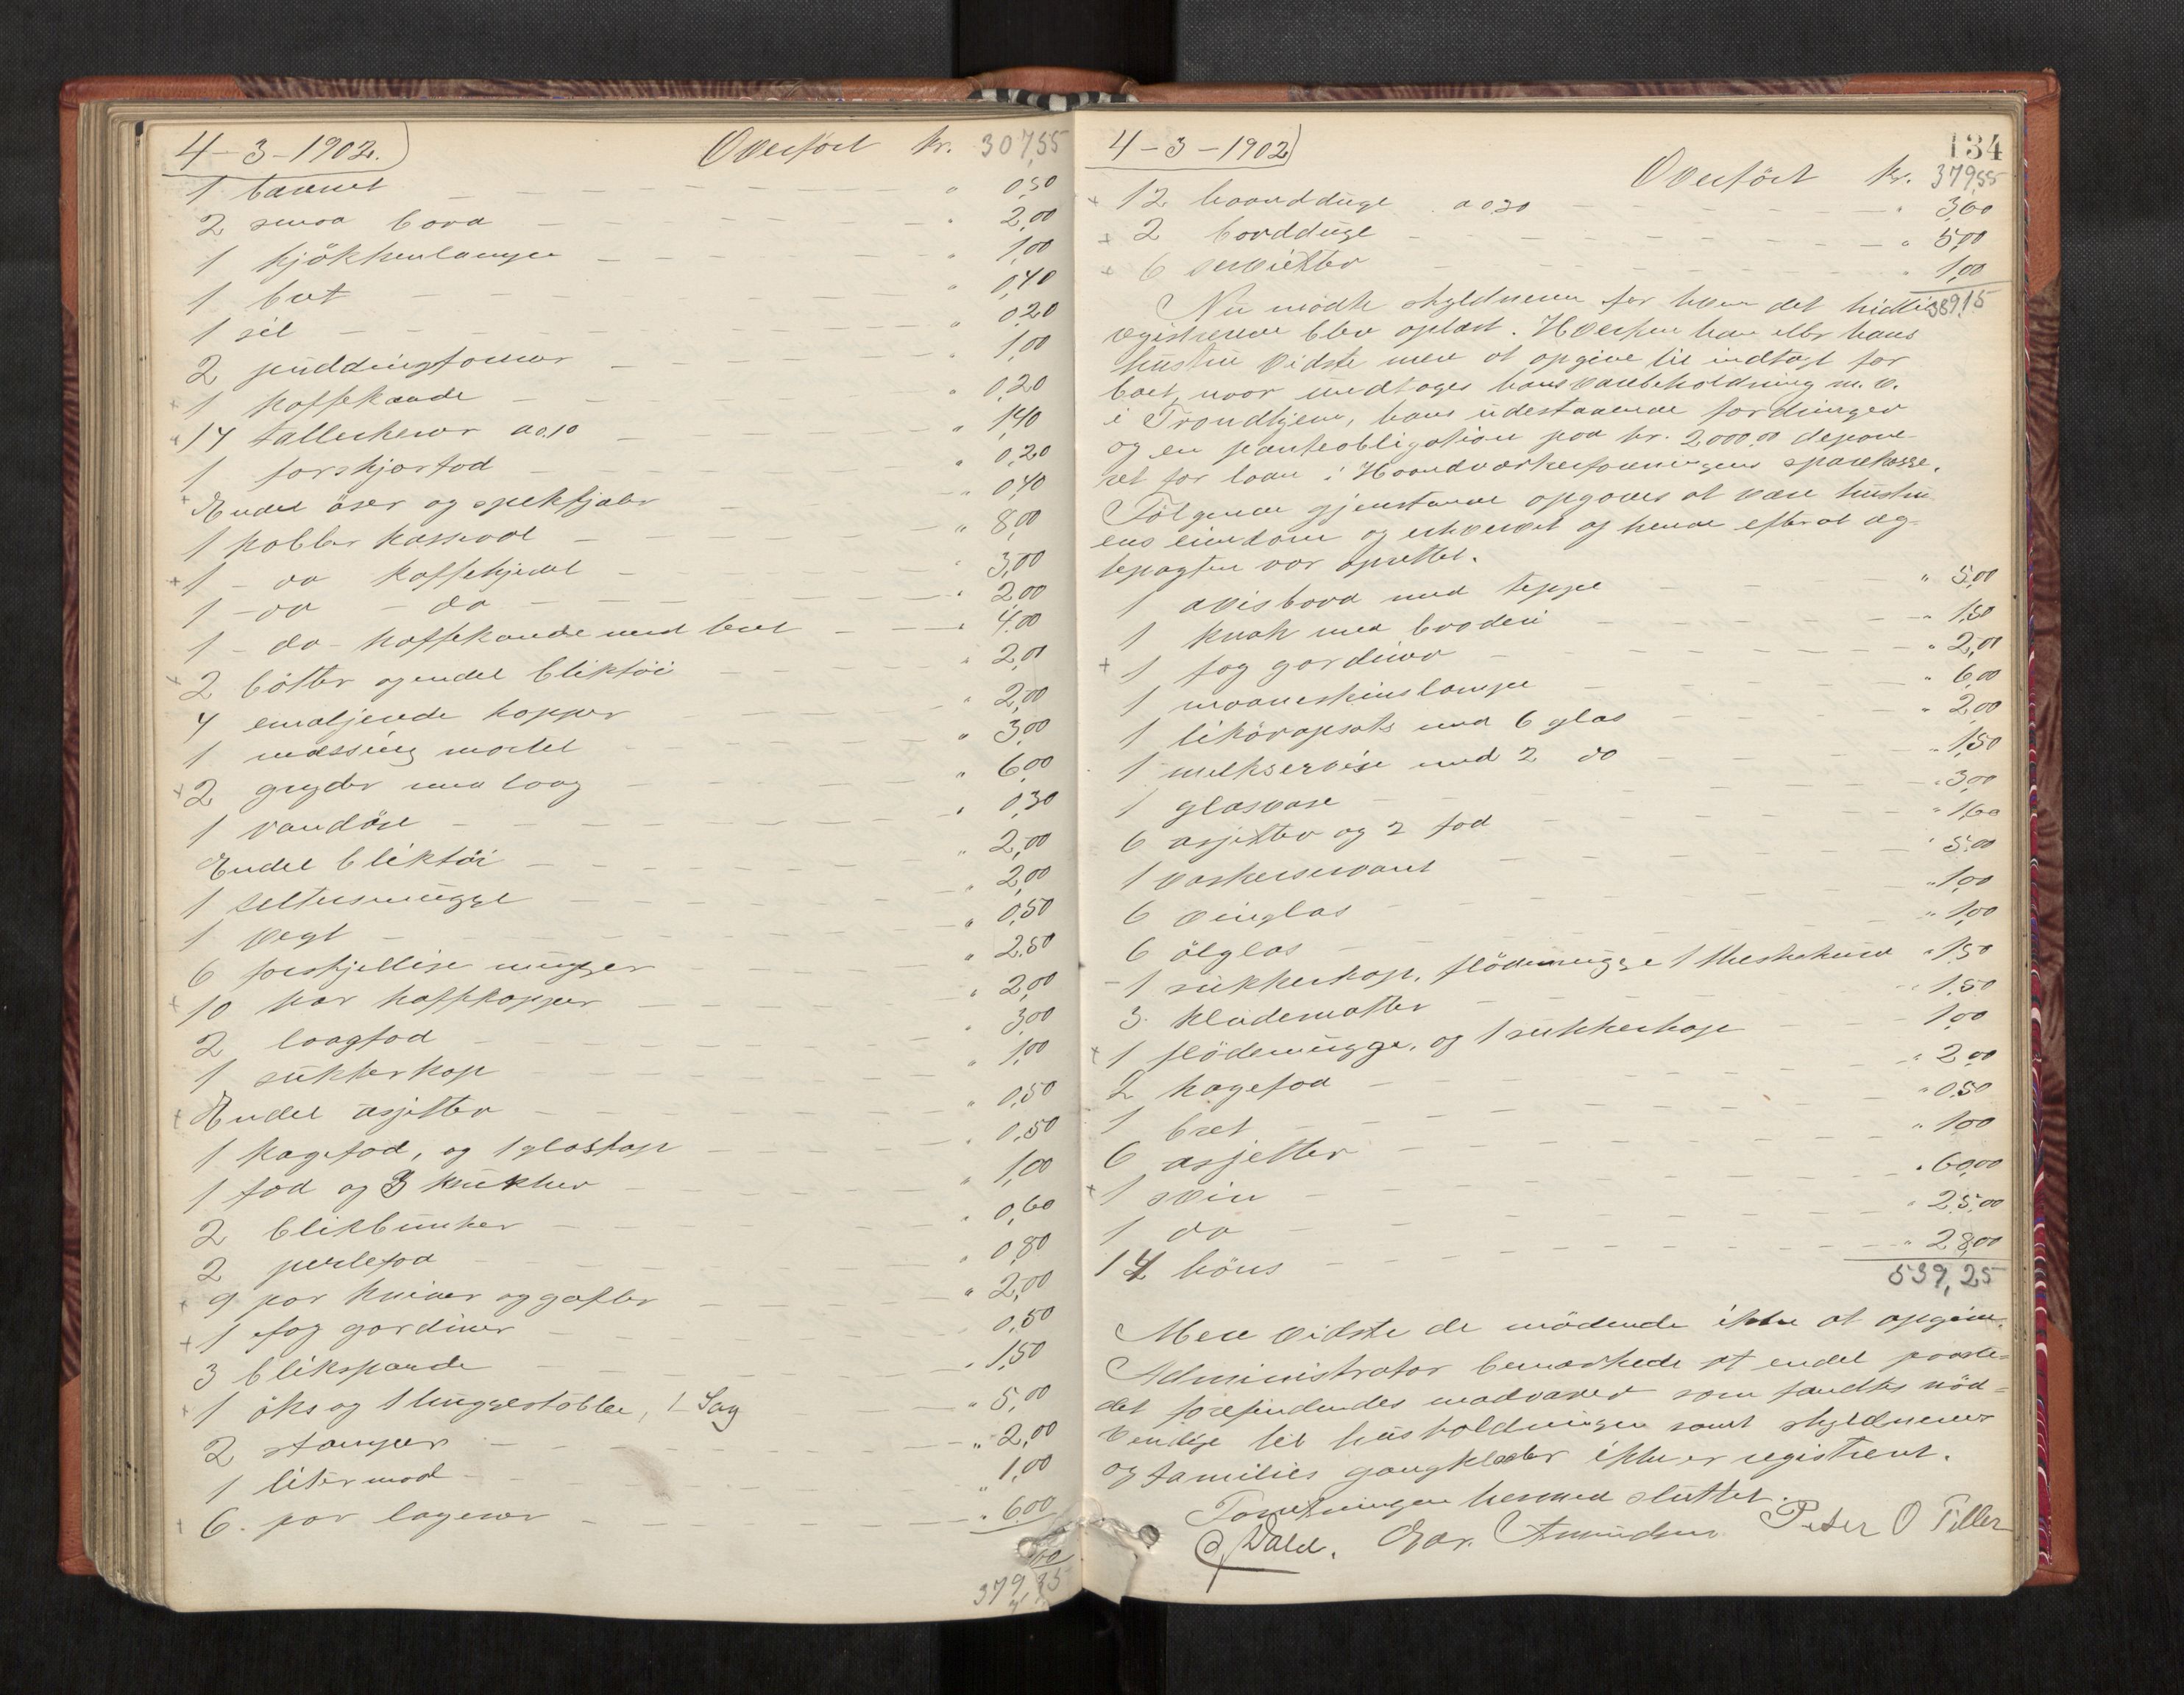 4-3-1902.
Overført kr. 307,55
1 taxxxt " 0,50
2 smaa bord " 2,00
1 kjøkkenlampe " 1,00
1 bret " 0,40
1 sil " 0,20
2 puddingformer " 1,00
+ 1 kaffekande " 0,20
+ 14 tallerkener a 0,10 " 1,40
1 forskjærfad " 0,20
+ Endel øser og spekfjæler " 0,40
1 kobber kasserol " 8,00
+ 1 - do kaffekjedel " 3,00
1 - do - do " 2,00
1 - do - kaffekande med bret " 4,00
+ 2 bøtter og endel bliktøi " 2,00
4 emaljerede kopper " 2,00
1 messing mortel " 3,00
+ 2 gryder med laag " 6,00
1 vandøse " 0,30
Endel bliktøi " 2,00
1 seltersmugge " 2,00
1 vegt " 0,50
6 forskjellige mugger " 2,50
+ 10 par kaffekopper " 2,00
2 laagfad " 3,00
1 sukkerkop " 1,00
+ Endel asjetter " 0,50
1 kagefad, og 1 glaskop " 0,50
1 fad og 3 krukker " 1,00
2 blikbunker " 0,60
2 perlefad " 0,80
+ 9 par kniver og gafler " 2,00
+ 1 fag gardiner 0,50
3 blikspande " 1,50
+ 1 øks og 1 huggestabbe, 1 Sag " 5,00
2 stamper " 2,00
1 litermaal " 1,00
+ 6 par lagener " 6,00
379,35
134
4-3-1902
Overført kr. 379,55
+ 12 haandduge a 0 30 " 3,60
+ 2 bordduge " 5,00
+ 6 servietter " 1,00
Nu mødte skyldneren for hvem det hidtil 389,15
registrerede blev oplæst. Hverken han eller hans
hustru vidste mere at opgive til indtægt for
boet, naar undtages hans varebeholdning m. v.
i Trondhjem, hans udestaaende fordringer
og en panteobligation paa kr. 2000,00 depone-
ret for laan i Haandværkerforeningens sparekasse.
Følgende gjenstande opgaves at være hustru
ens eiendom og erhvervet af hende efterat æg-
tepagten var oprettet.
1 avisbord med teppe " 5,00
1 knak med broderi " 1,50
+ 1 fag gardiner " 2,00
1 maaneskinslampe " 6,00
1 likøropsats med 6 glas " 2,00
1 melkservise med 2 do " 1,50
1 glasvase " 3,00
6 asjetter og 2 fad " 1,60
1 vaskeservant " 5,00
6 vinglas " 1,00
6 ølglas " 1,00
- 1 sukkerkop, flødemugge 1 theskekurv " 1,50
3 klædematter 1,50
+ 1 flødemugge, og 1 sukkerkop 1,00
2 kagefad " 2,00
1 bret " 0,50
6 asjetter " 1,00
+ 1 svin " 60,00
1 do " 25,00
14 høns " 28,00
539,25
Mere vidste de mødende ikke at opgive.
Administrator bemærkede at endel paaste-
det forefindendes madvarer som fandtes nød-
vendige til husholdningen samt skyldneres
og families gangklæder ikke er registreret.
Forretningen hermed sluttet.
Wald. Amundsen Peter O Tiller